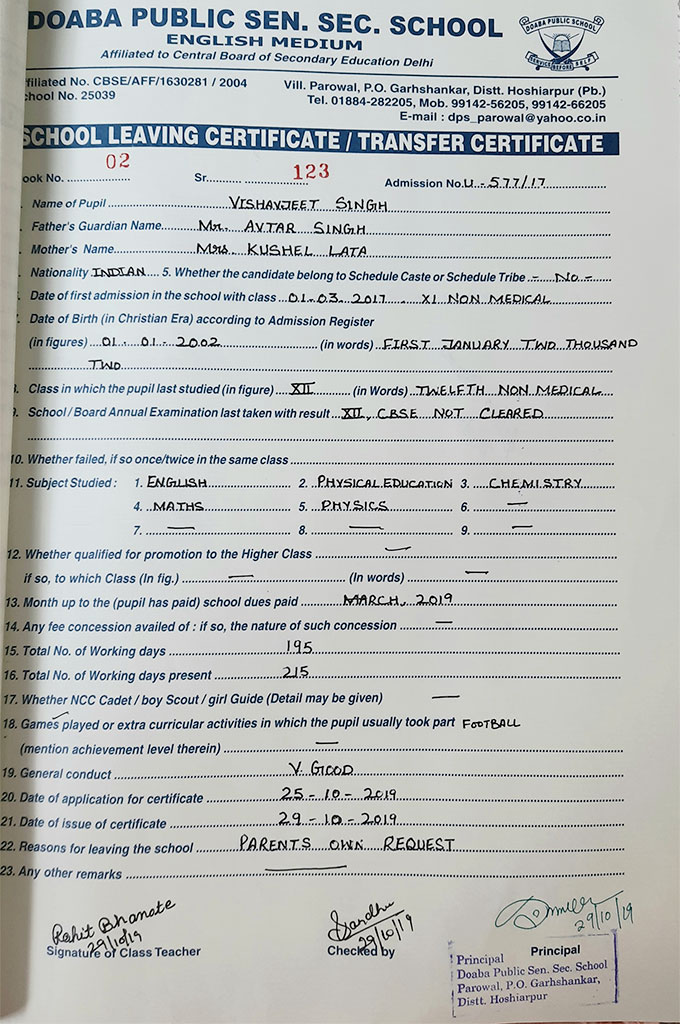 DOABA PUBLIC SEN. SEC. SCHOOL
ENGLISH MEDIUM
Affiliated to Central Board of Secondary Education Delhi
DOABA PUBLIC SCHOOL
SERVICE BEFORE SELF
filiated No. CBSE/AFF/1630281 / 2004
hool No. 25039
Vill. Parowal, P.O. Garhshankar, Distt. Hoshiarpur (Pb.)
Tel. 01884-282205, Mob. 99142-56205, 99142-66205
E-mail : dps_parowal@yahoo.co.in
SCHOOL LEAVING CERTIFICATE / TRANSFER CERTIFICATE
ook No. 02 Sr. 123 Admission No. U-577/17
Name of Pupil VISHAVJEET SINGH
Father's Guardian Name Mr. AVTAR SINGH
Mother's Name Mrs. KUSHEL LATA
Nationality INDIAN 5. Whether the candidate belong to Schedule Caste or Schedule Tribe - No -
Date of first admission in the school with class 01-03-2017 XI NON MEDICAL
Date of Birth (in Christian Era) according to Admission Register
(in figures) 01-01-2002 (in words) FIRST JANUARY TWO THOUSAND
TWO
Class in which the pupil last studied (in figure) XII (in Words) TWELFTH NON MEDICAL
School / Board Annual Examination last taken with result XII, CBSE NOT CLEARED
10. Whether failed, if so once/twice in the same class
11. Subject Studied : 1. ENGLISH 2. PHYSICAL EDUCATION 3. CHEMISTRY
4. MATHS 5. PHYSICS 6. —
7. — 8. — 9. —
12. Whether qualified for promotion to the Higher Class —
if so, to which Class (In fig.) — (In words) —
13. Month up to the (pupil has paid) school dues paid MARCH, 2019
14. Any fee concession availed of : if so, the nature of such concession —
15. Total No. of Working days 195
16. Total No. of Working days present 215
17. Whether NCC Cadet / boy Scout / girl Guide (Detail may be given) —
18. Games played or extra curricular activities in which the pupil usually took part FOOTBALL
(mention achievement level therein) —
19. General conduct V. GOOD
20. Date of application for certificate 25-10-2019
21. Date of issue of certificate 29-10-2019
22. Reasons for leaving the school PARENTS OWN REQUEST
23. Any other remarks —
Rohit Bhanate
29/10/19
Signature of Class Teacher
Sandhu
29/10/19
Checked by
29/10/19
Principal
Principal
Doaba Public Sen. Sec. School
Parowal, P.O. Garhshankar,
Distt. Hoshiarpur